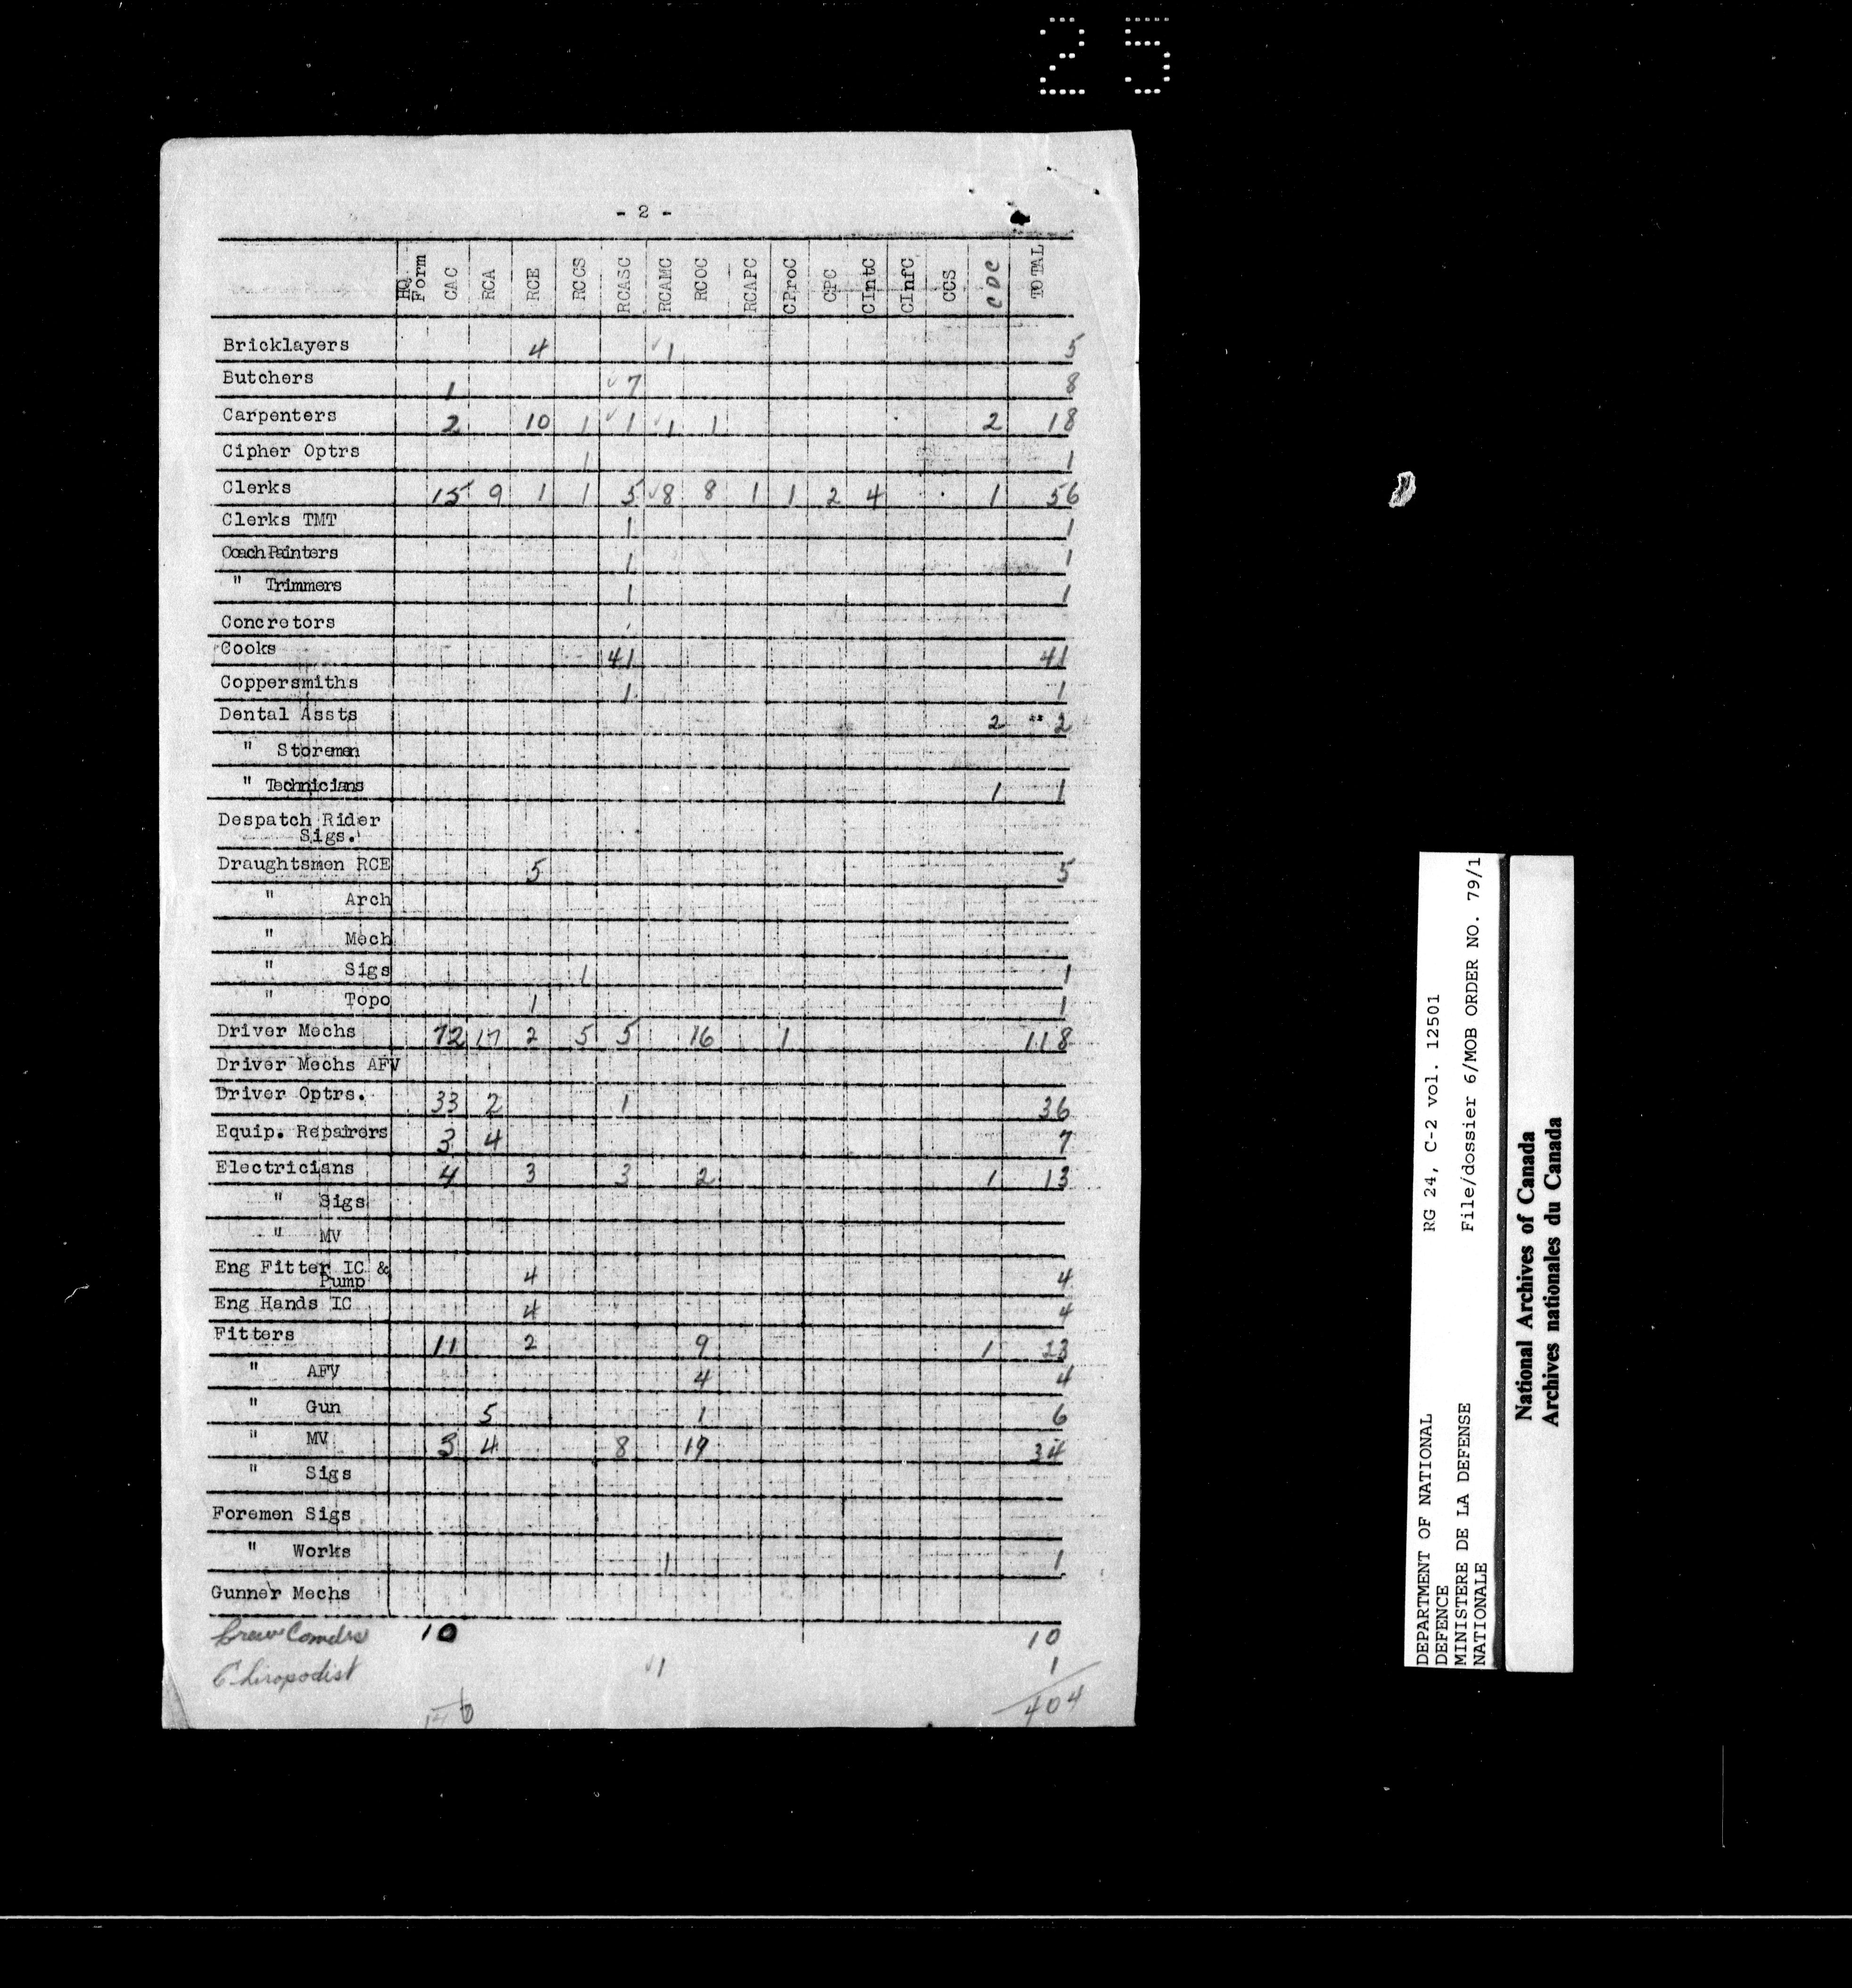 25
- 2 -
HQ Form CAC RCA RCE RCCS RCASC RCAMC RCOC RCAPC CProC CPC CIntC CInfC CCS CDC TOTAL
Bricklayers 4 √1 5
Butchers 1 √7 8
Carpenters 2 10 1 √1 √1 1 2 18
Cipher Optrs 1 1
Clerks 15 9 1 1 5 √8 8 1 1 2 4 1 56
Clerks TMT 1 1
Coach Painters 1 1
" Trimmers 1 1
Concretors
Cooks 41 41
Coppersmiths 1 1
Dental Assts 2 " 2
" Storemen
" Technicians 1 1
Despatch Rider
Sigs.
Draughtsmen RCE 5 5
" Arch
" Mech
" Sigs 1 1
" Topo 1 1
Driver Mechs 72 17 2 5 5 16 1 118
Driver Mechs AFV
Driver Optrs. 33 2 1 36
Equip. Repairers 3 4 7
Electricians 4 3 3 2 1 13
" Sigs
" MV
Eng Fitter IC &
Pump 4 4
Eng Hands IC 4 4
Fitters 11 2 9 1 23
" AFV 4 4
" Gun 5 1 6
" MV 3 4 8 19 34
" Sigs
Foremen Sigs
" Works 1 1
Gunner Mechs
Crew Comdrs 10 10
Chiropodist √1 1
404
DEPARTMENT OF NATIONAL
DEFENCE
MINISTERE DE LA DEFENSE
NATIONALE
RG 24, C-2 vol. 12501
File/dossier 6/MOB ORDER NO. 79/1
National Archives of Canada
Archives nationales du Canada